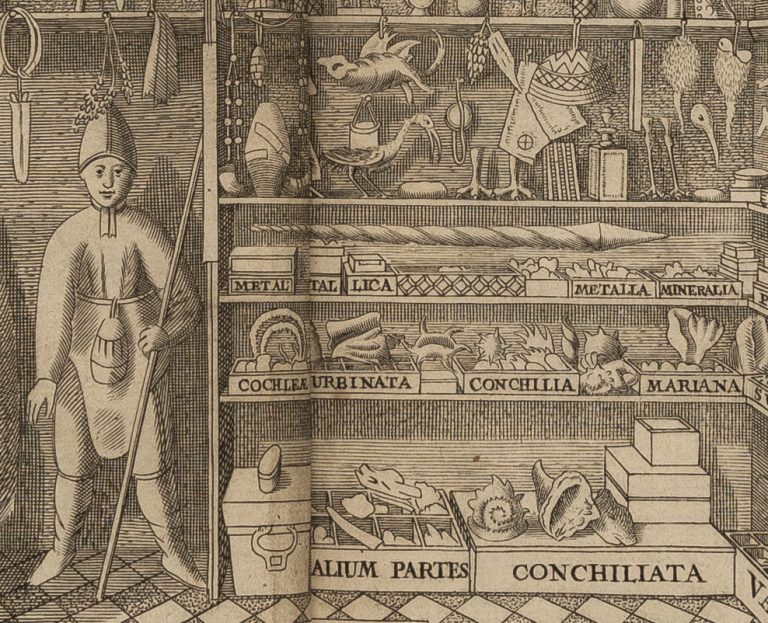 METAL TAL LICA METALLA MINERALIA
COCHLEÆ URBINATA CONCHILIA MARIANA
ALIUM PARTES CONCHILIATA V